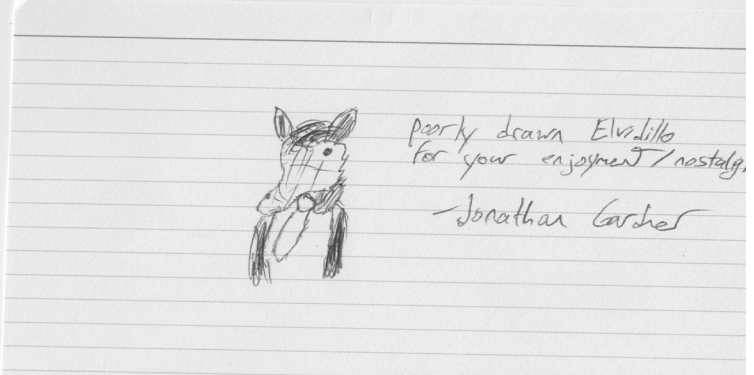 poorly drawn Elvidillo
for your enjoyment/nostalg
-Jonathan Gardner